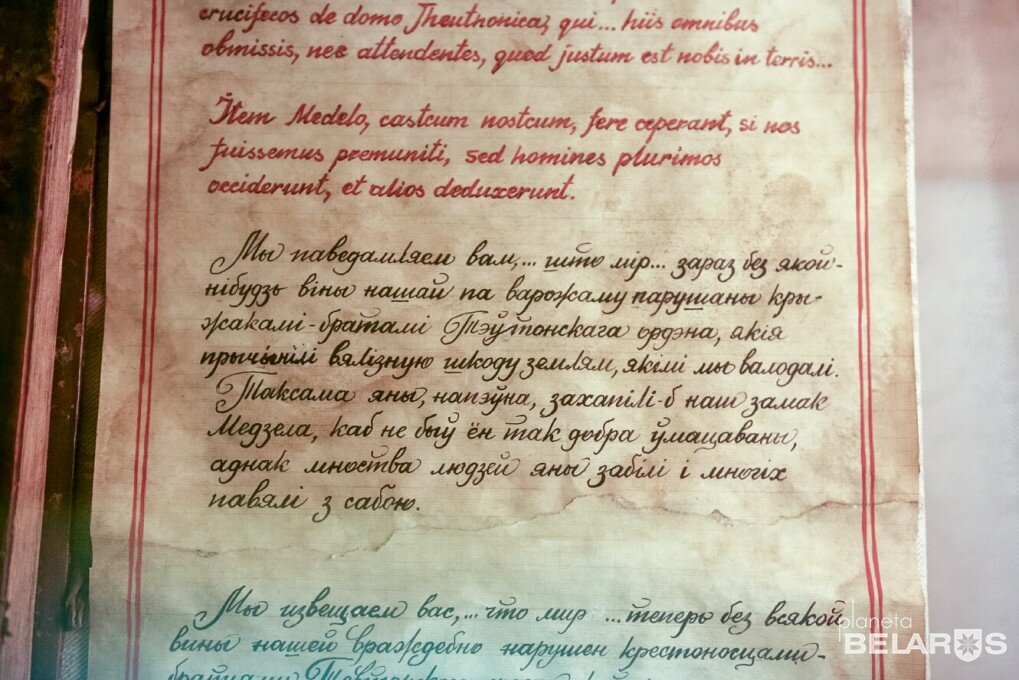 crucifecos de domo Theutnonica, qui... hiis omnibus
obmissis, nec attendentes, quod justum est nobis in terris...
Item Medelo, castcum nostcum, fere ceperant, si nos
fuissemus premuniti, sed homines plurimos
occiderunt, et alios deduxerunt.
Мы паведамляем вам,... што мір... зараз без якой-
нібудзь віны нашай па варожаму парушаны кры-
жакамі-братамі Тэўтонскага ордэна, якія
прычынілі вялізную шкоду землям, якімі мы валодалі.
Таксама яны, напэўна, захапілі-б наш замак
Медзела, каб не быў ён так добра ўмацаваны,
аднак мноства людзей яны забілі і многіх
павялі з сабою.
Мы извещаем вас,... что мир ...теперь без всякой
вины нашей враждебно нарушен крестоносцами-
братьями
planeta
BELARUS